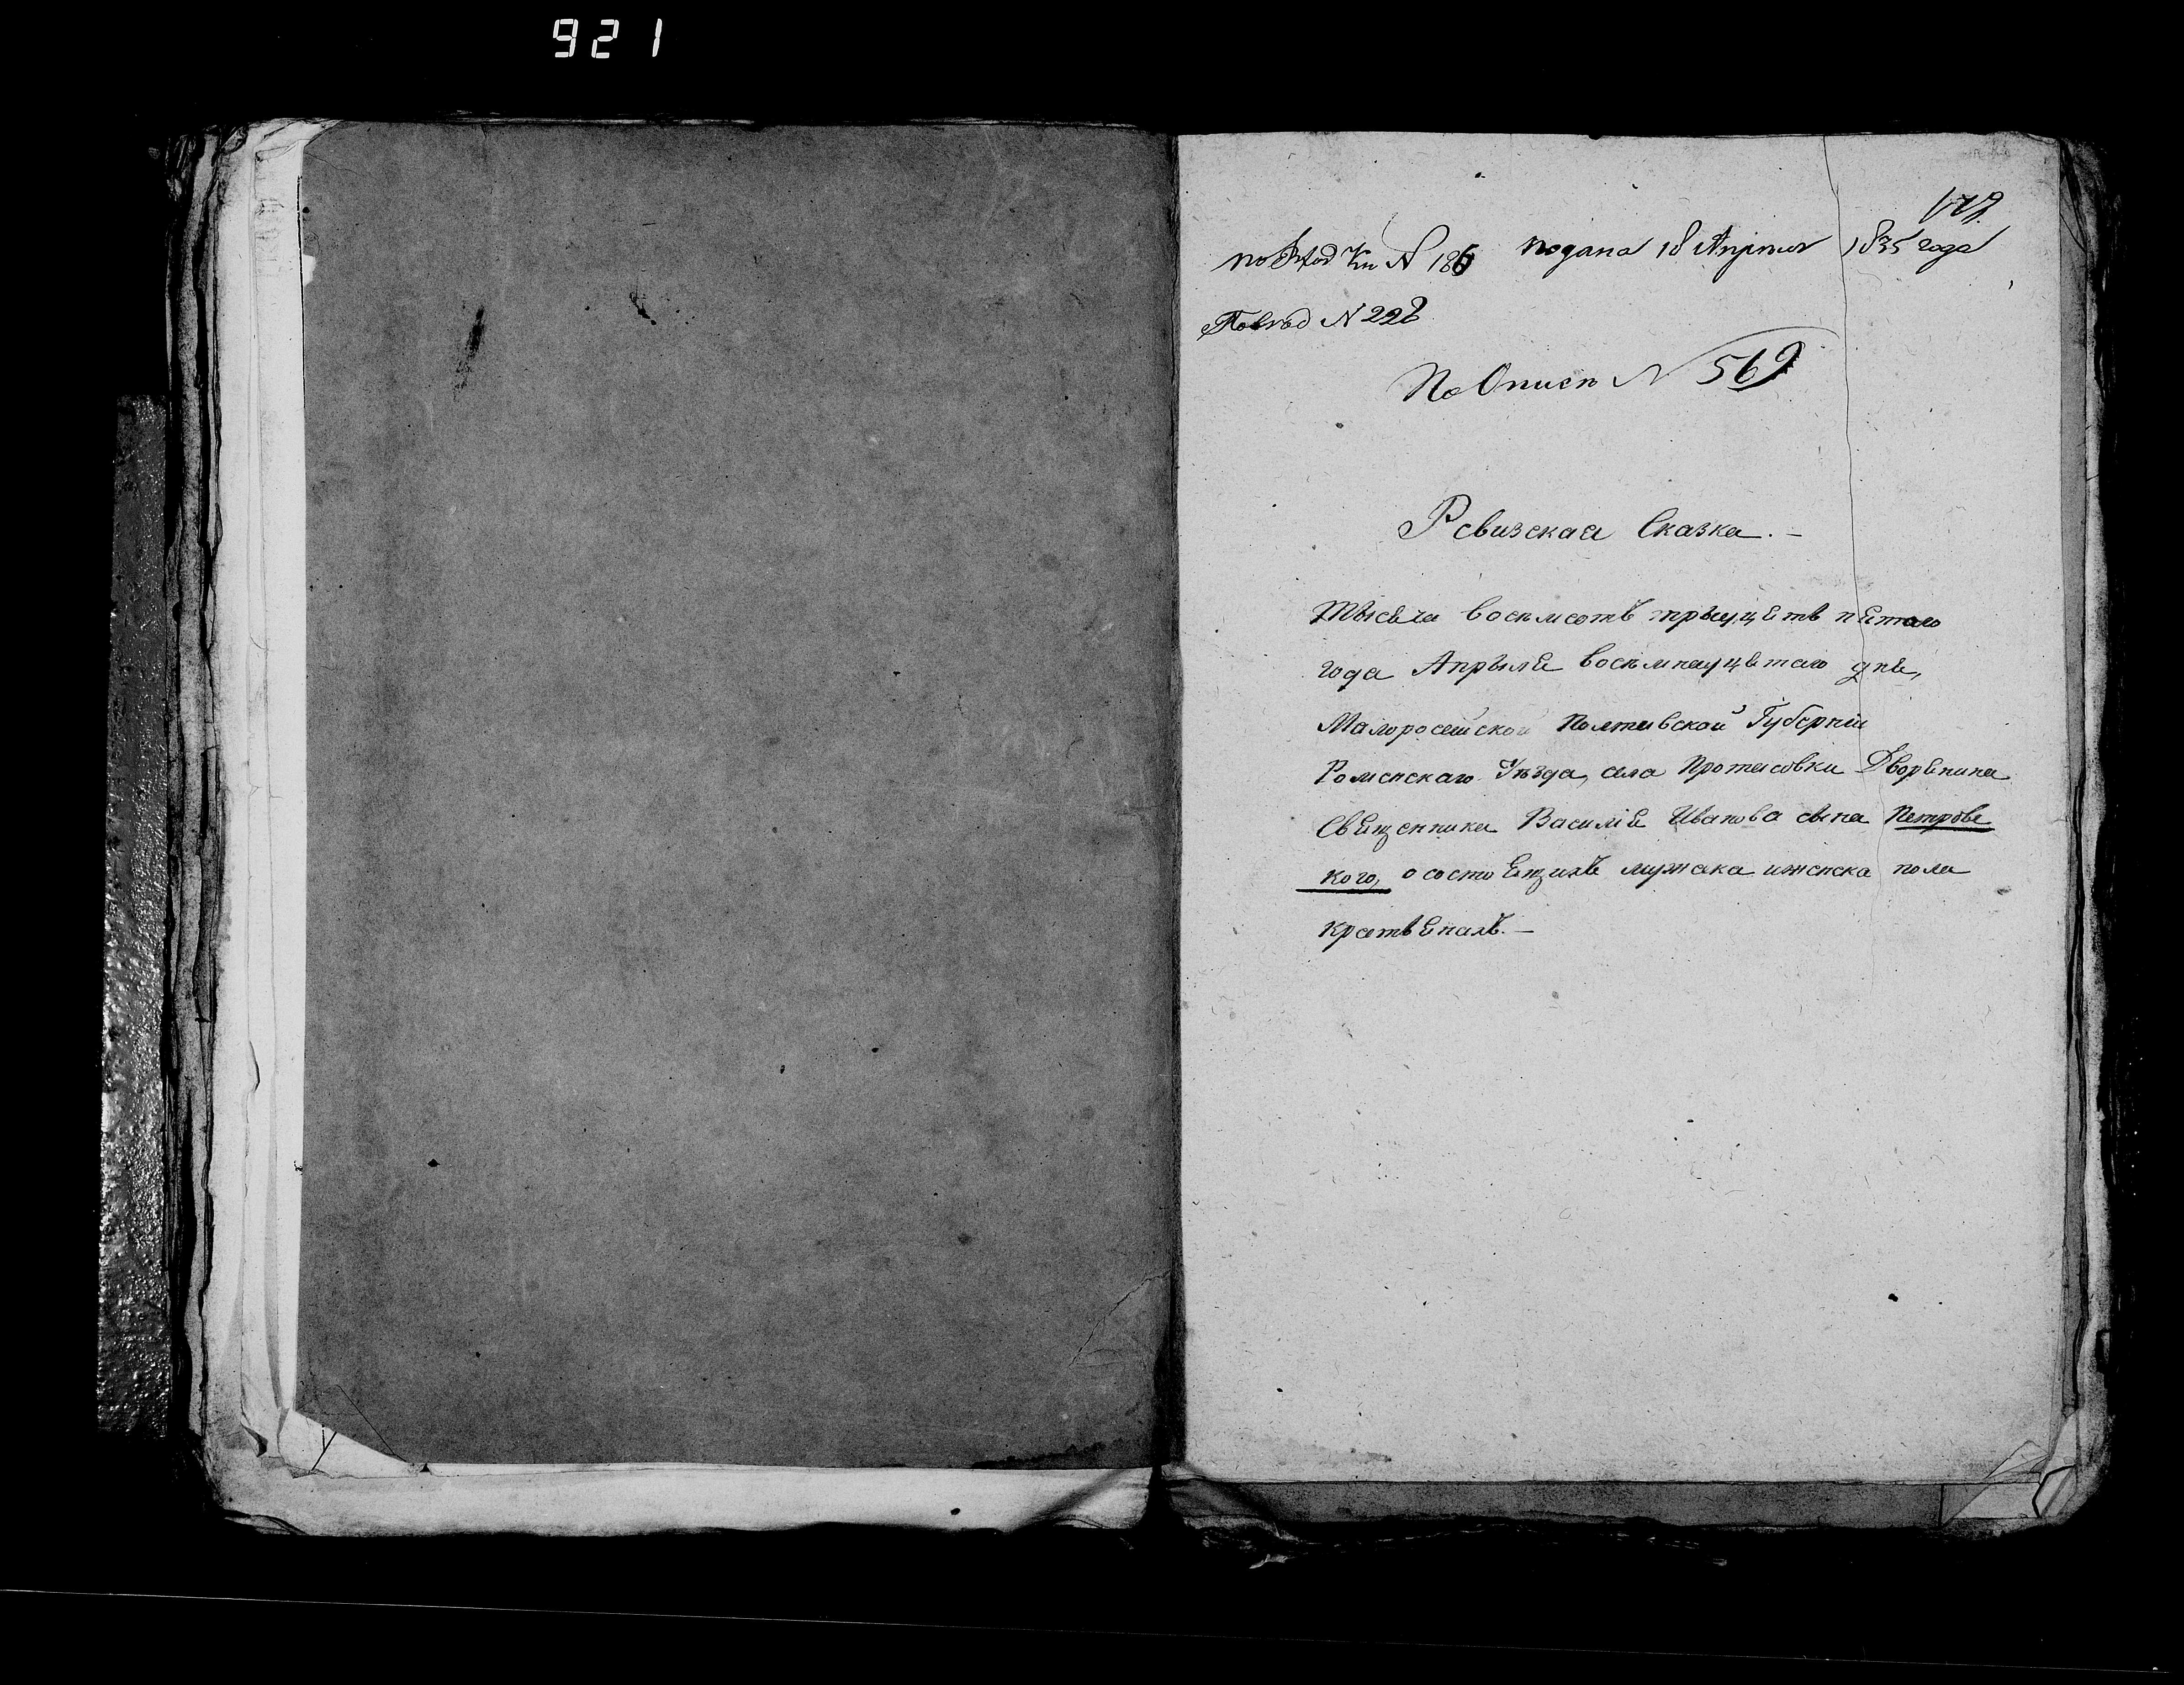 921
по Вход Кн N 186 подана 18 Апреля 1835 года
N 228
По Описи N 569
Ревизская Сказка. —
Тысяча восемсотъ трыцять пятаго
года Апрыля восемнацятаго дня,
Малоросейской Полтавской Губерніи
Роменскаго Уезда, села Протасовки Дворянина
Священника Василія Иванова сына Петровс
кого, о состоящихъ мужска иженска пола
крстьянахъ. —